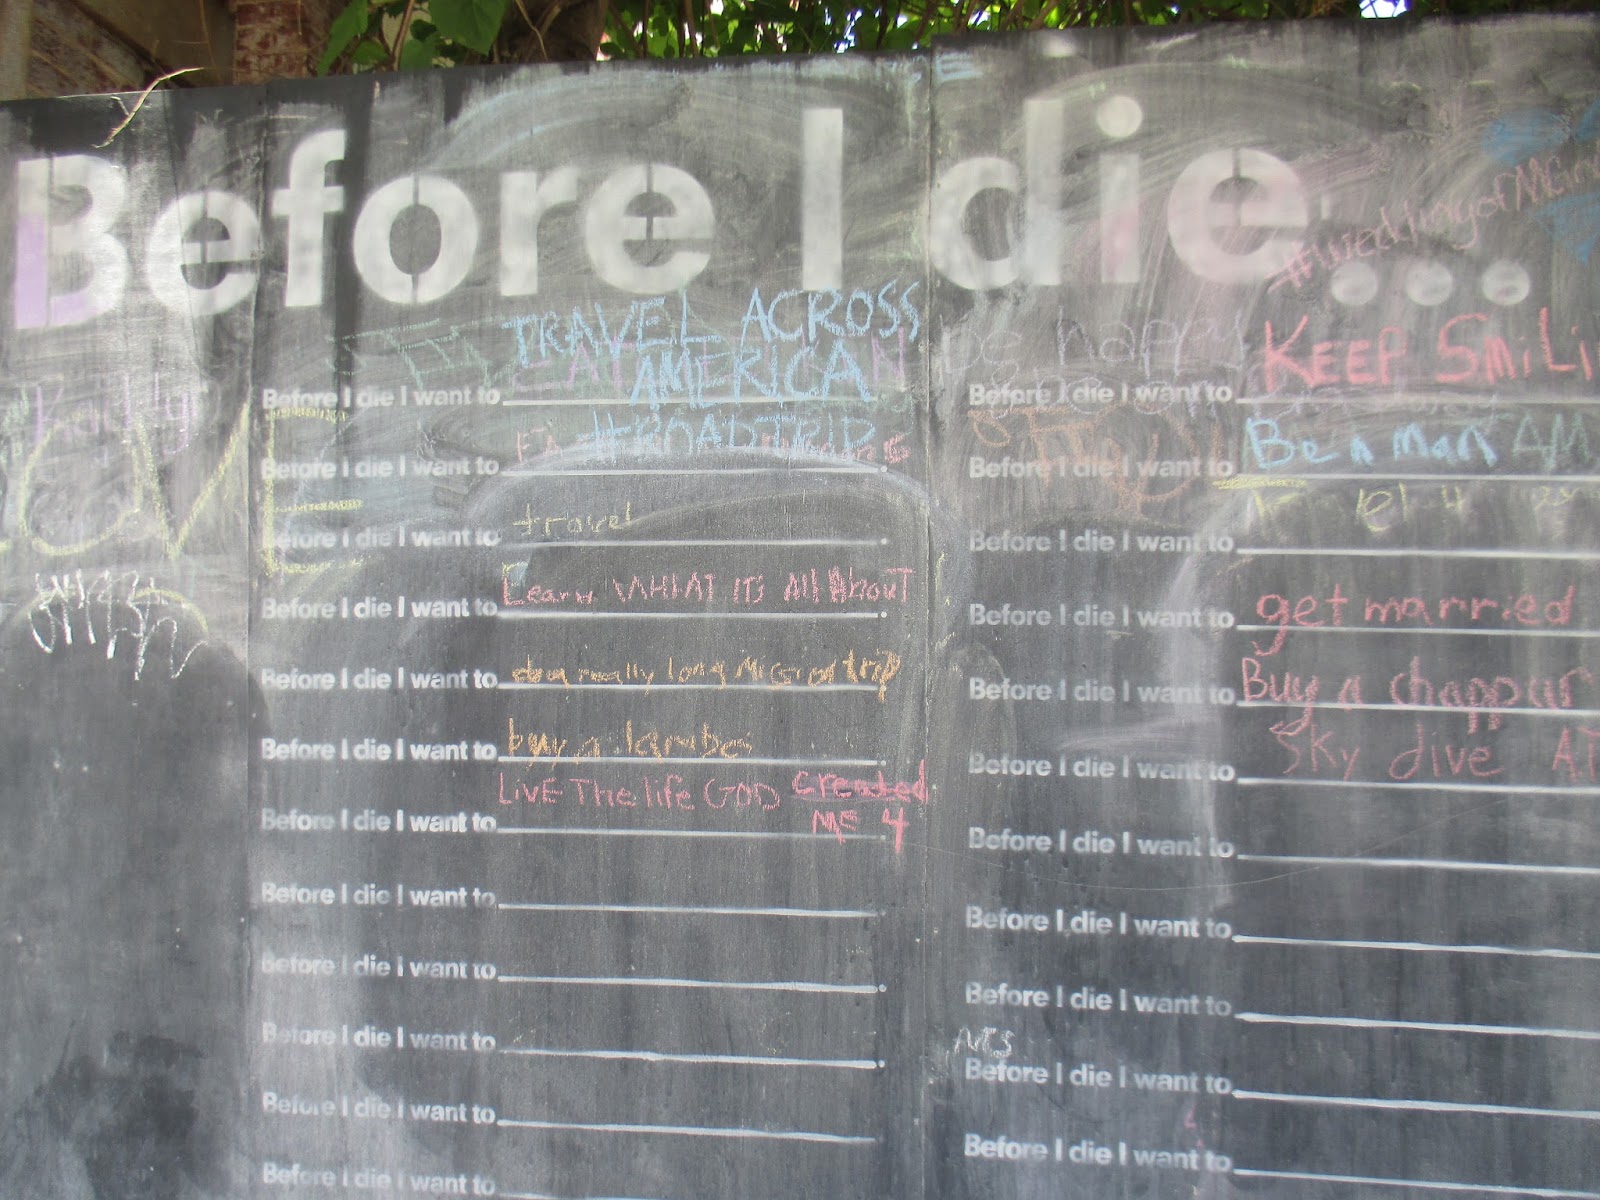 Before I die...
#weddingofMG
TRAVEL ACROSS
AMERICA
Before I die I want to
#ROADTRIP
Before I die I want to
Before I die I want to travel
Before I die I want to Learn WHAT ITS All AboUT
Before I die I want to do a really long mission trip
Before I die I want to buy a lambo
LIVE The life GOD created
Before I die I want to ME 4
Before I die I want to
Before I die I want to
Before I die I want to
Before I die I want to
Before I die I want to
LOVE
be happy
Before I die I want to KEEP SMiLi
Before I die I want to Be a Man
Before I die I want to
Before I die I want to get married
Before I die I want to Buy a chappur
Before I die I want to Sky dive AT
Before I die I want to
Before I die I want to
Before I die I want to
Before I die I want to
Before I die I want to